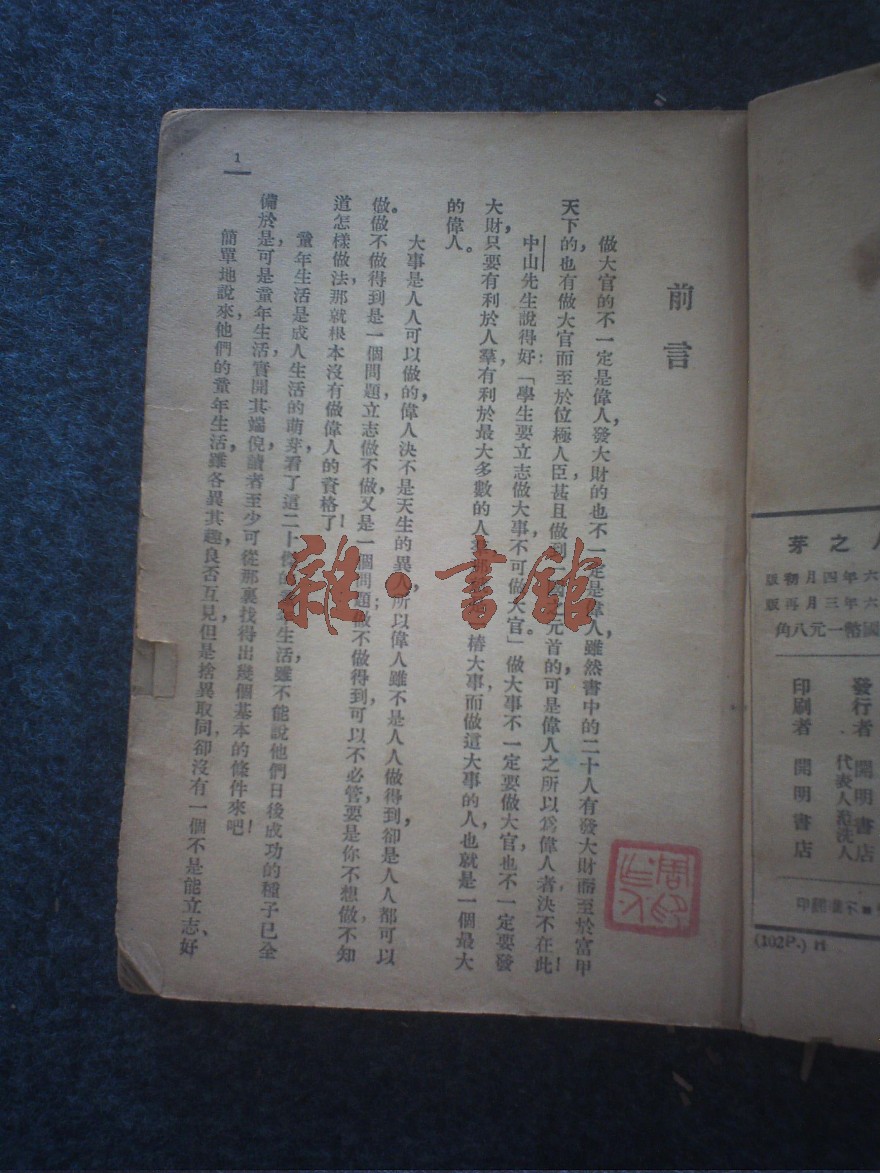 前言
做大官的不一定是偉人，發大財的也不一定是偉人，雖然書中的二十人有發大財而至於富甲
天下的，也有做大官而至於位極人臣，甚且做到元首的，可是偉人之所以爲偉人者，決不在此！
中山先生說得好：「學生要立志做大事，不可做大官。」做大事不一定要做大官，也不一定要發
大財，只要有利於人羣，有利於最大多數的人椿大事，而做這大事的人，也就是一個最大
的偉人。
大事是人人可以做的，偉人決不是天生的異人，所以偉人雖不是人人做得到，卻是人人都可以
做。做不做得到是一個問題，立志做不做又是一個問題；做不做得到，可以不必管，要是你不想做，不知
道怎樣做法，那就根本沒有做偉人的資格了！
童年生活是成人生活的萌芽，看了這二十生活，雖不能說他們日後成功的種子已全
備於是，可是童年生活，實開其端倪，讀者至少可從那裏找得出幾個基本的條件來吧！
簡單地說來，他們的童年生活，雖各異其趣，良否互見，但是捨異取同，卻沒有一個不是能立志、好
1
雜·書館
之芽
六年四月初版
六年三月再版
國幣一元八角
發行者 開明書店
代表人范洗人
印刷者 開明書店
(102P.) H